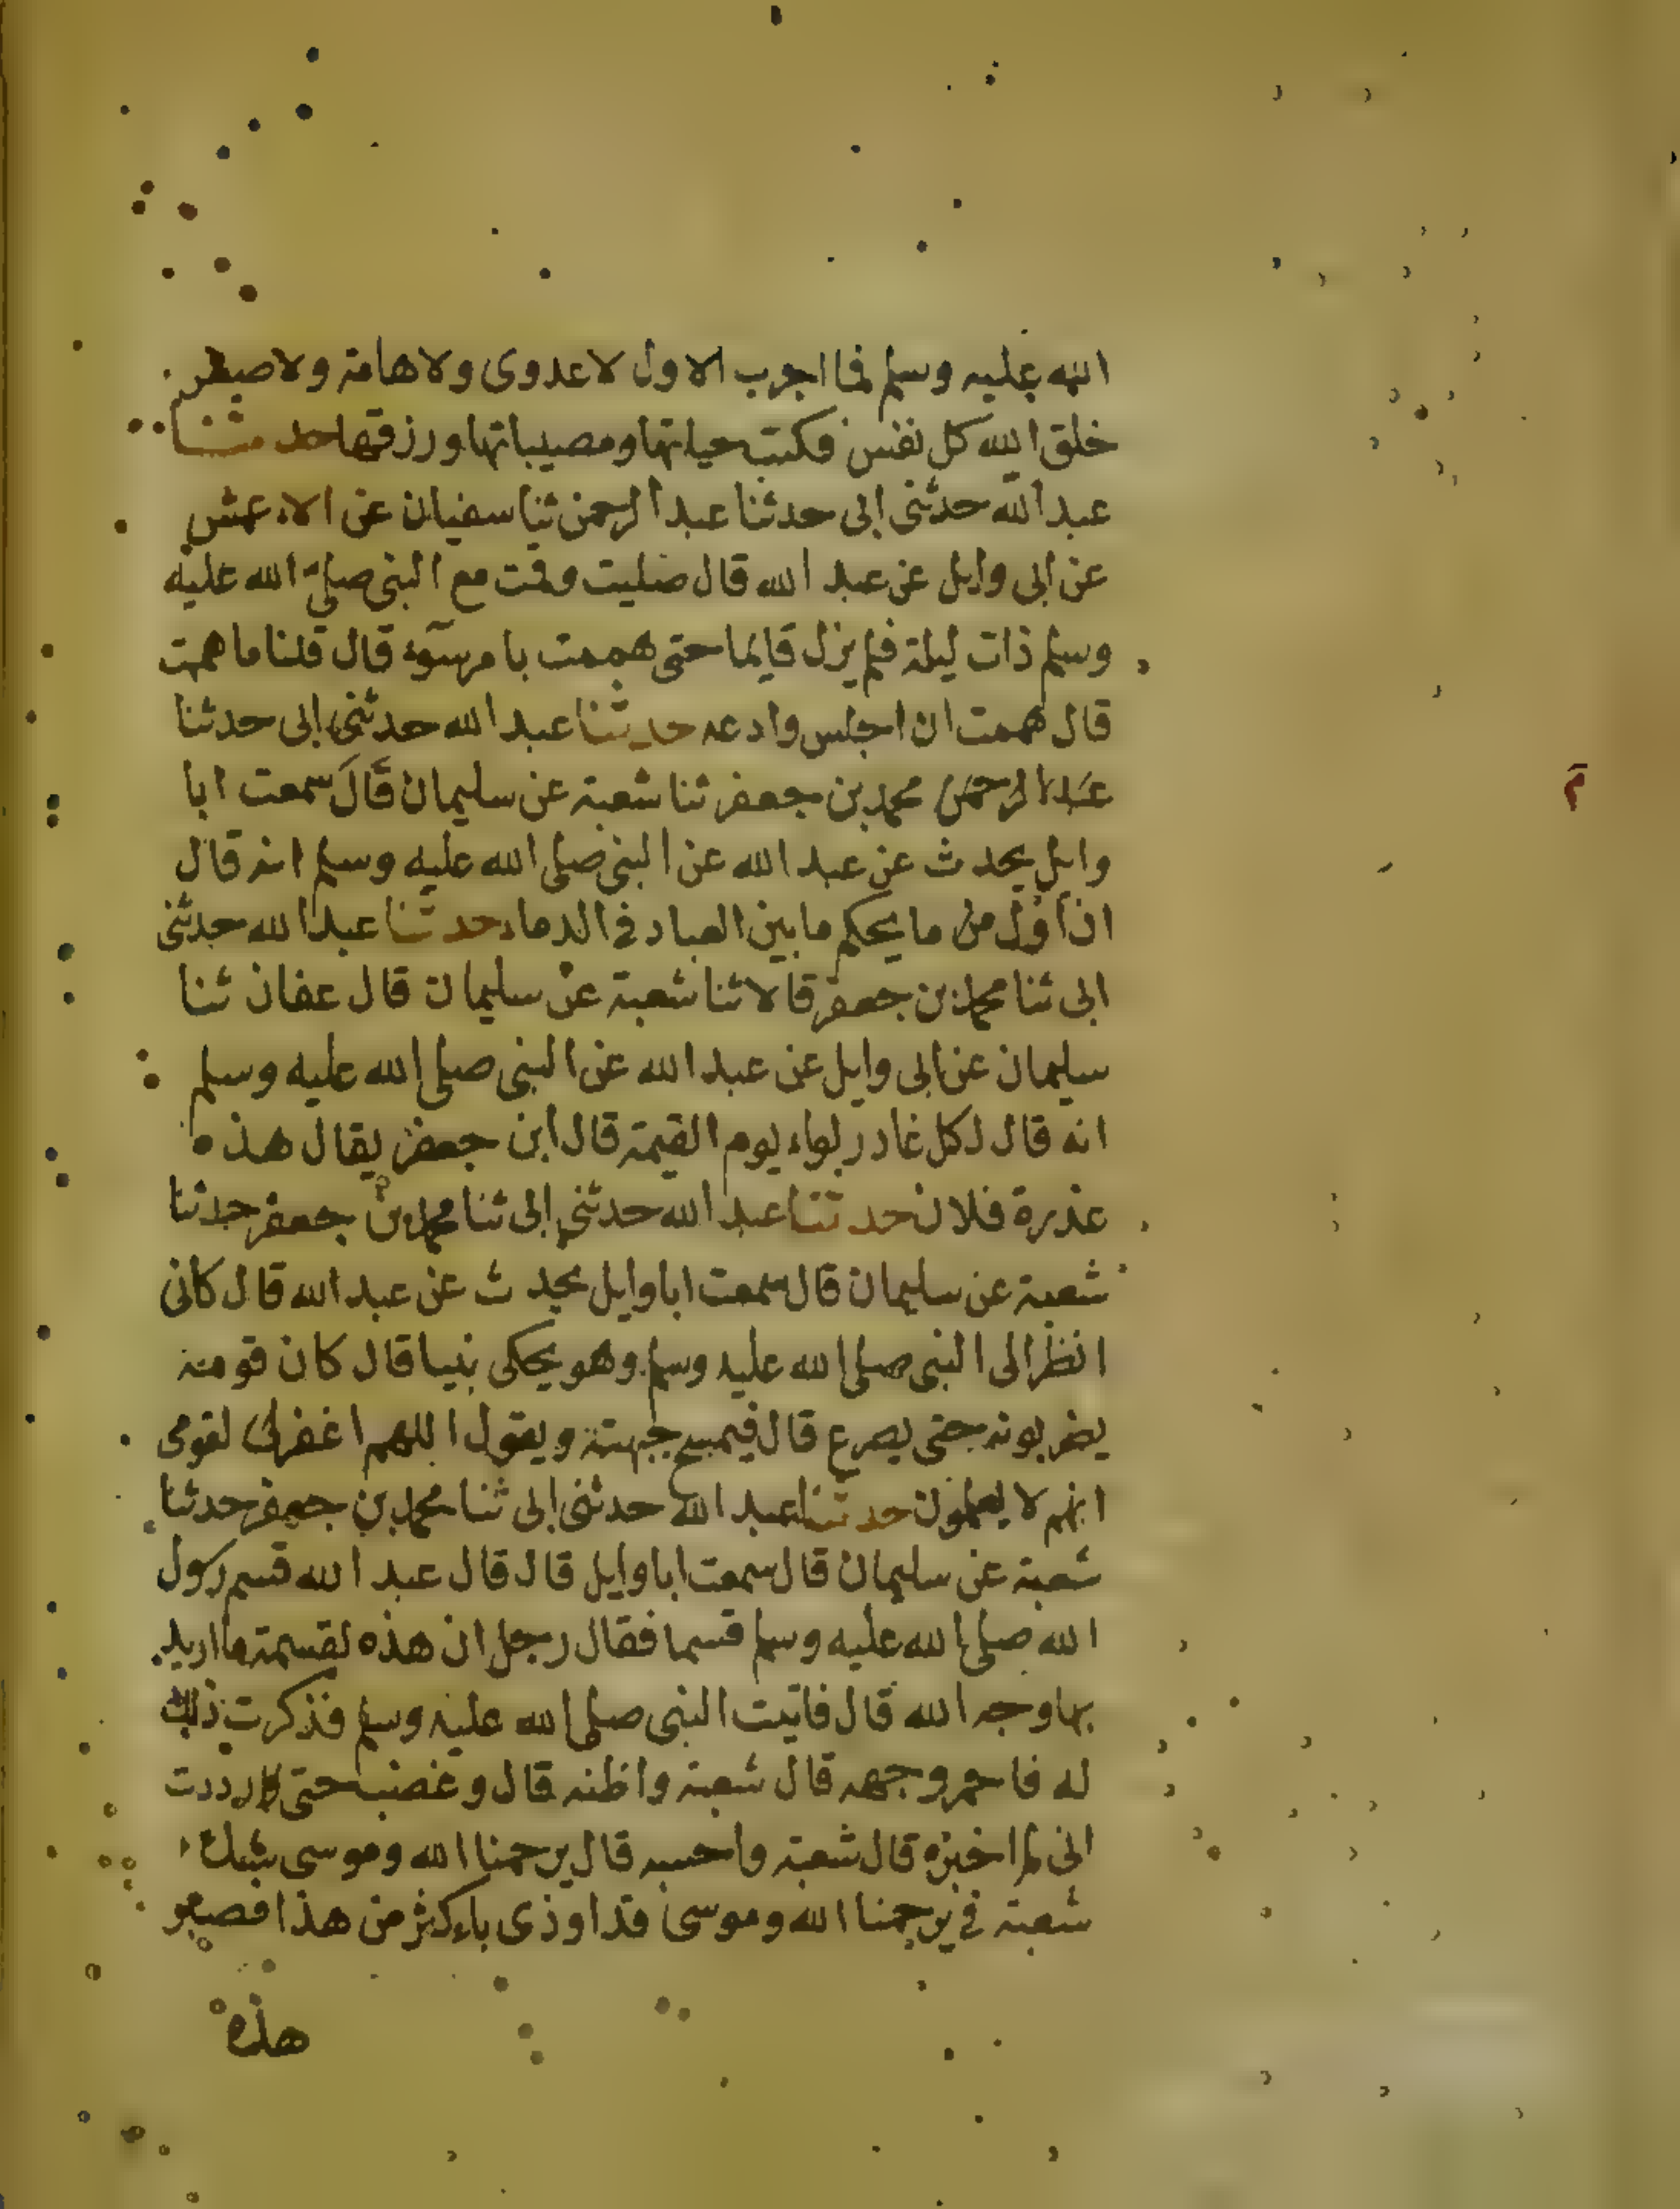 الله عليه وسلم فما اجرب الاول لاعدوى ولا هامة ولا صفر
خلق الله كل نفس فكتب حياتها ومصيباتها ورزقها حدثنا
عبد الله حدثني ابى حدثنا عبد الرحمن ثنا سفيان عن الاعمش
عن ابى وايل عن عبد الله قال صليت وقت مع النبى صلى الله عليه
وسلم ذات ليلة فلم يزل قايما حتى هممت بامر سوء قال قلنا ما هممت
قال هممت ان اجلس وادعه حدثنا عبد الله حدثنى ابى حدثنا
عبد الرحمن محمد بن جعفر ثنا شعبة عن سليمان قَالَ سمعت ابا
وايل يحدث عن عبد الله عن النبى صلى الله عليه وسلم انه قال
ان اول من ما يحكم ما بين العباد فى الدماء حدثنا عبد الله حدثنى
ابى ثنا محمد بن جعفر قالا ثنا شعبة عن سليمان قال عفان ثنا
سليمان عن ابى وايل عن عبد الله عن النبى صلى الله عليه وسلم
انه قال لكل غادر لواء يوم القيمة قال ابن جعفر يقال هذه
عذرة فلان حدثنا عبد الله حدثنى ابى ثنا محمد بن جعفر حدثنا
شعبة عن سليمان قال سمعت ابا وايل يحدث عن عبد الله قال كانى
انظر الى النبى صلى الله عليه وسلم وهو يحكى نبيا قال كان قومه
يضربونه حتى يصرع قال فيمسح جبهته ويقول اللهم اغفر لى لقومى
انهم لا يعلمون حدثنا عبد الله حدثنى ابى ثنا محمد بن جعفر حدثنا
شعبة عن سليمان قال سمعت ابا وايل قال قال عبد الله قسم رسول
الله صلى الله عليه وسلم قسما فقال رجل ان هذه لقسمة ما اريد
بها وجه الله قال فاتيت النبى صلى الله عليه وسلم فذكرت ذلك
له فاحمر وجهه قال شعبة واظنه قال وغضب حتى وددت
انى لم اخبره قال شعبة واحسبه قال يرحمنا الله وموسى شك
شعبة فى يرحمنا الله وموسى قد اوذى باكثر من هذا فصبر
هذه